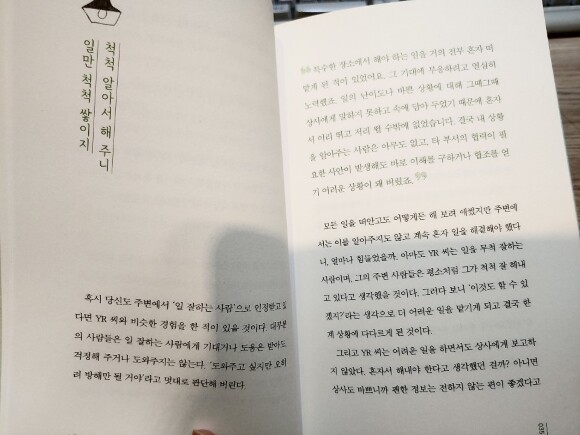 척척 알아서 해 주니
일만 척척 쌓이지
혹시 당신도 주변에서 '일 잘하는 사람'으로 인정받고 있
다면 YR 씨와 비슷한 경험을 한 적이 있을 것이다. 대부분
의 사람들은 일 잘하는 사람에게 기대거나 도움은 받아도
걱정해 주거나 도와주지는 않는다. '도와주고 싶지만 오히
려 방해만 될 거야'라고 멋대로 판단해 버린다.
특수한 장소에서 해야 하는 일을 거의 전부 혼자 떠
맡게 된 적이 있었어요. 그 기대에 부응하려고 열심히
노력했죠. 일의 난이도나 바쁜 상황에 대해 그때그때
상사에게 말하지 못하고 속에 담아 두었기 때문에 혼자
서 이리 뛰고 저리 뛸 수밖에 없었습니다. 결국 내 상황
을 알아주는 사람은 아무도 없고, 타 부서의 협력이 필
요한 사안이 발생해도 바로 이해를 구하거나 협조를 얻
기 어려운 상황이 돼 버렸죠.
모든 일을 떠안고도 어떻게든 해 보려 애썼지만 주변에
서는 이를 알아주지도 않고 계속 혼자 일을 해결해야 했다
니, 얼마나 힘들었을까. 아마도 YR 씨는 일을 무척 잘하는
사람이며, 그의 주변 사람들은 평소처럼 그가 척척 잘 해내
고 있다고 생각했을 것이다. 그러다 보니 '이것도 할 수 있
겠지?'라는 생각으로 더 어려운 일을 맡기게 되고 결국 한
계 상황에 다다르게 된 것이다.
그리고 YR 씨는 어려운 일을 하면서도 상사에게 보고하
지 않았다. 혼자서 해내야 한다고 생각했던 걸까? 아니면
상사도 바쁘니까 괜한 정보는 전하지 않는 편이 좋겠다고
035